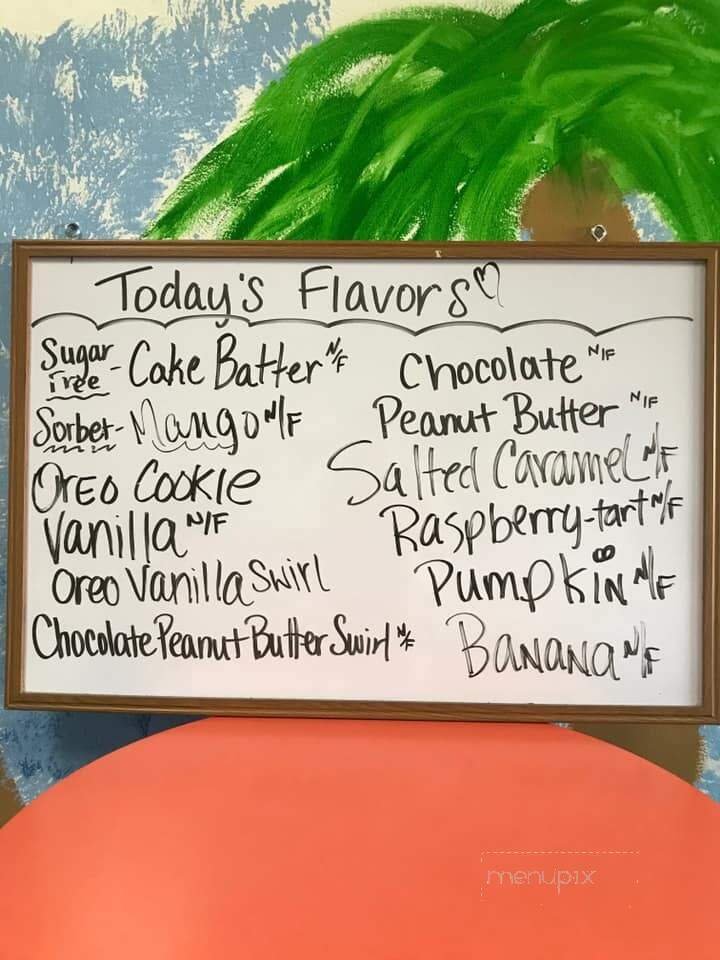 Today's Flavors
Sugar Free - Cake Batter N/F
Sorbet - Mango N/F
Oreo Cookie
Vanilla N/F
Oreo Vanilla Swirl
Chocolate Peanut Butter Swirl N/F
Chocolate N/F
Peanut Butter N/F
Salted Caramel N/F
Raspberry-tart N/F
Pumpkin N/F
Banana N/F
menupix